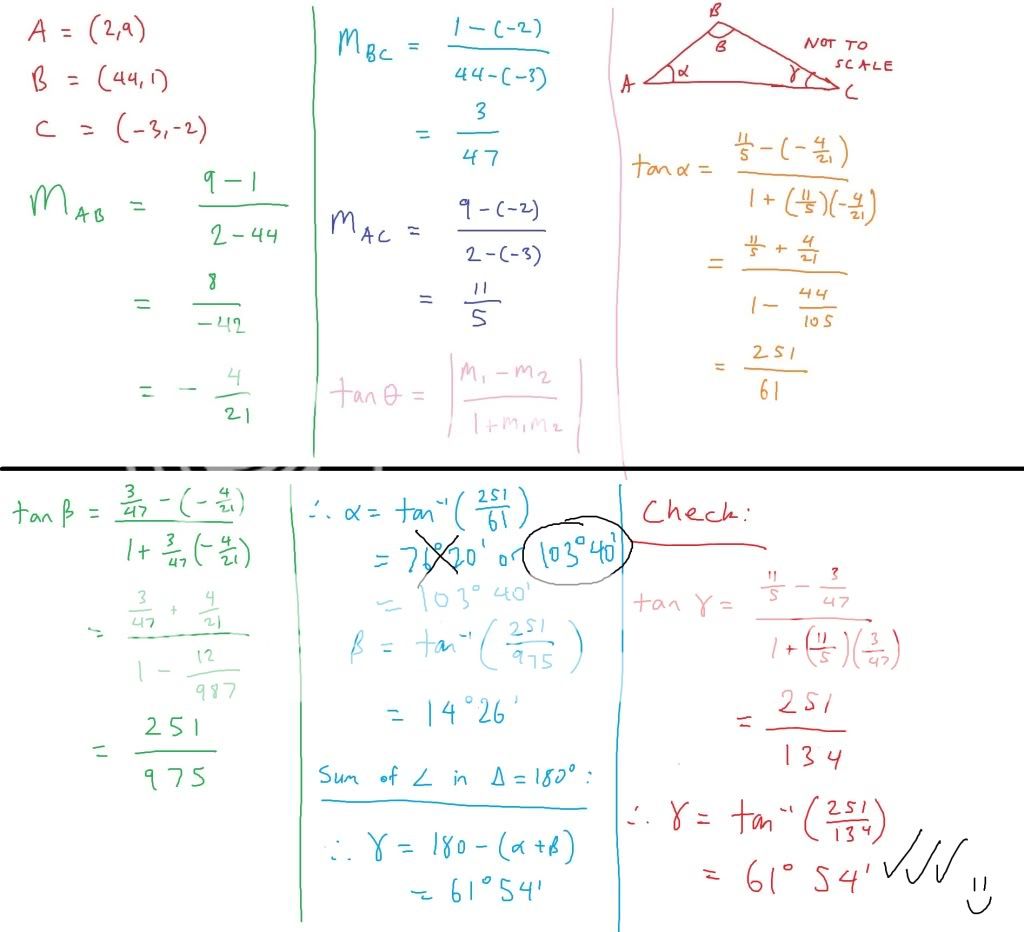 A = (2,9)
B = (44,1)
C = (-3,-2)
M_AB = (9 - 1)/(2 - 44)
= 8/(-42)
= - 4/21
M_BC = (1 - (-2))/(44 - (-3))
= 3/47
M_AC = (9 - (-2))/(2 - (-3))
= 11/5
tan θ = |(m₁ - m₂)/(1 + m₁m₂)|
B
B
A α γ C
NOT TO
SCALE
tan α = (11/5 - (-4/21))/(1 + (11/5)(-4/21))
= (11/5 + 4/21)/(1 - 44/105)
= 251/61
tan β = (3/47 - (-4/21))/(1 + 3/47(-4/21))
= (3/47 + 4/21)/(1 - 12/987)
= 251/975
∴ α = tan⁻¹(251/61)
= 76°20' or 103°40'
= 103°40'
β = tan⁻¹(251/975)
= 14°26'
Sum of ∠ in Δ = 180°:
∴ γ = 180 - (α + β)
= 61°54'
Check:
tan γ = (11/5 - 3/47)/(1 + (11/5)(3/47))
= 251/134
∴ γ = tan⁻¹(251/134)
= 61°54' ✓✓✓